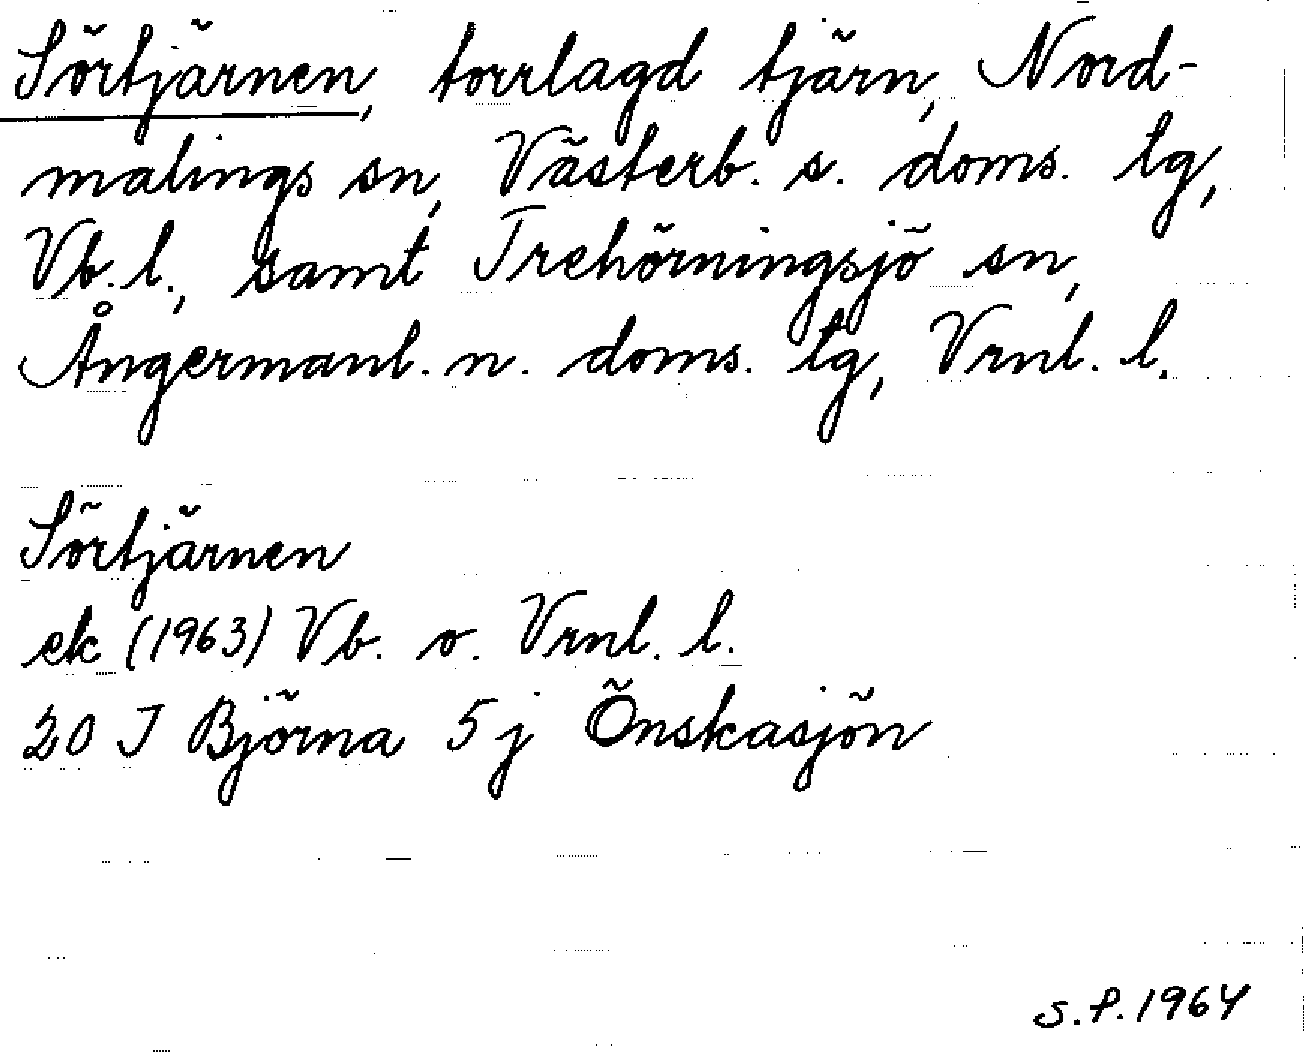 Sörtjärnen, torrlagd tjärn, Nord-
malings sn, Västerb. s. doms. tg,
Vb. l., samt Trehörningsjö sn,
Ångermanl. n. doms. tg, Vrnl. l.
Sörtjärnen
ek (1963) Vb. o. Vrnl. l.
20 J Björna 5 j Önskasjön
S.P. 1964